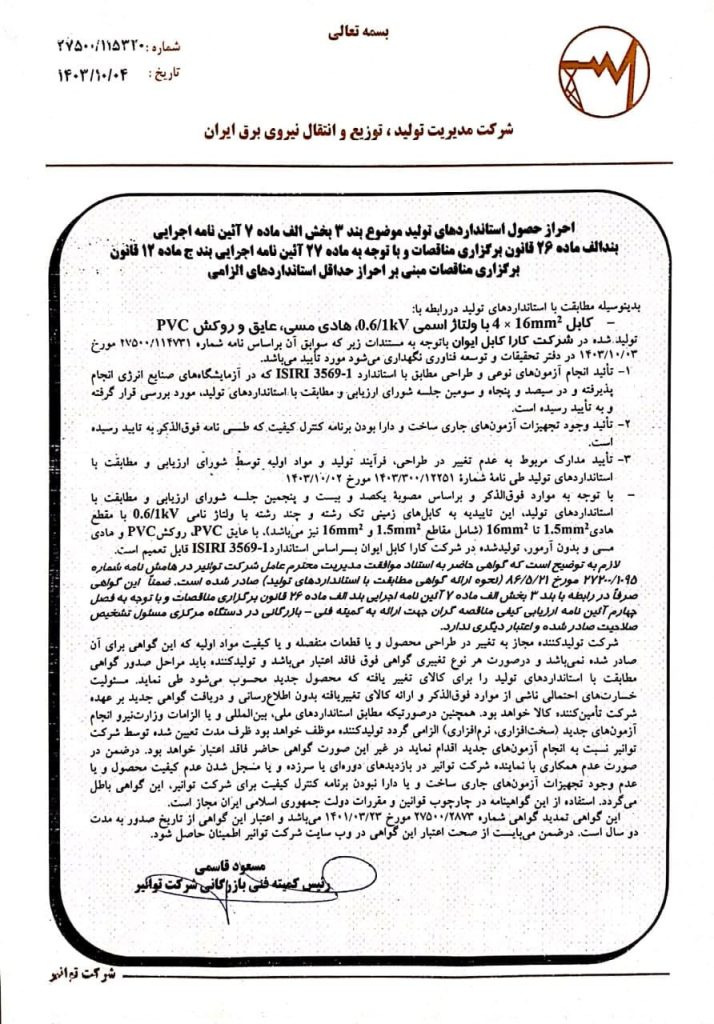 بسمه تعالی
شماره : ۲۷۵۰۰/۱۱۵۳۲۰
تاریخ : ۱۴۰۳/۱۰/۰۴
شرکت مدیریت تولید ، توزیع و انتقال نیروی برق ایران
احراز حصول استانداردهای تولید موضوع بند ۳ بخش الف ماده ۷ آئین نامه اجرایی
بندالف ماده ۲۶ قانون برگزاری مناقصات و با توجه به ماده ۲۷ آئین نامه اجرایی بند ج ماده ۱۲ قانون
برگزاری مناقصات مبنی بر احراز حداقل استانداردهای الزامی
بدینوسیله مطابقت با استانداردهای تولید دررابطه با:
– کابل 4 × 16mm² با ولتاژ اسمی 0.6/1kV، هادی مسی، عایق و روکش PVC
تولید شده در شرکت کارا کابل ایوان باتوجه به مستندات زیر که سوابق آن براساس نامه شماره ۲۷۵۰۰/۱۱۴۷۳۱ مورخ
۱۴۰۳/۱۰/۰۳ در دفتر تحقیقات و توسعه فناوری نگهداری می‌شود مورد تأیید می‌باشد.
۱- تأئید انجام آزمون‌های نوعی و طراحی مطابق با استاندارد ISIRI 3569-1 که در آزمایشگاه‌های صنایع انرژی انجام
پذیرفته و در سیصد و پنجاه و سومین جلسه شورای ارزیابی و مطابقت با استانداردهای تولید، مورد بررسی قرار گرفته
و به تأیید رسیده است.
۲- تأئید وجود تجهیزات آزمون‌های جاری ساخت و دارا بودن برنامه کنترل کیفیت که طی نامه فوق‌الذکر به تایید رسیده
است.
۳- تأیید مدارک مربوط به عدم تغییر در طراحی، فرآیند تولید و مواد اولیه توسط شورای ارزیابی و مطابقت با
استانداردهای تولید طی نامهٔ شمارهٔ ۱۴۰۳/۳۰۰/۱۲۲۵۱ مورخ ۱۴۰۳/۱۰/۰۲
– با توجه به موارد فوق‌الذکر و براساس مصوبهٔ یکصد و بیست و پنجمین جلسه شورای ارزیابی و مطابقت با
استانداردهای تولید، این تاییدیه به کابل‌های زمینی تک رشته و چند رشته با ولتاژ نامی 0.6/1kV با مقطع
هادی1.5mm² تا 16mm² (شامل مقاطع 1.5mm² و 16mm² نیز می‌باشد)، با عایق PVC، روکشPVC و هادی
مسی و بدون آرمور، تولیدشده در شرکت کارا کابل ایوان بـراساس استانداردISIRI 3569-1 قابل تعمیم است.
لازم به توضیح است که گواهی حاضر به استناد موافقت مدیریت محترم عامل شرکت توانیر در هامش نامه شماره
۲۷۲۰۰/۱۰۹۵ مورخ ۸۶/۵/۲۱ (نحوه ارائه گواهی مطابقت با استانداردهای تولید) صادر شده است. ضمناً این گواهی
صرفاً در رابطه با بند ۳ بخش الف ماده ۷ آئین نامه اجرایی بند الف ماده ۲۶ قانون برگزاری مناقصات و با توجه به فصل
چهارم آئین نامه ارزیابی کیفی مناقصه گران جهت ارائه به کمیته فنی – بازرگانی در دستگاه مرکزی مسئول تشخیص
صلاحیت صادر شده و اعتبار دیگری ندارد.
شرکت تولیدکننده مجاز به تغییر در طراحی محصول و یا قطعات منفصله و یا کیفیت مواد اولیه که این گواهی برای آن
صادر شده نمی‌باشد و درصورت هر نوع تغییری گواهی فوق فاقد اعتبار می‌باشد و تولیدکننده باید مراحل صدور گواهی
مطابقت با استانداردهای تولید را برای کالای تغییر یافته که محصول جدید محسوب می‌شود طی نماید. مسئولیت
خسارت‌های احتمالی ناشی از موارد فوق‌الذکر و ارائه کالای تغییریافته بدون اطلاع‌رسانی و دریافت گواهی جدید بر عهده
شرکت تأمین‌کننده کالا خواهد بود. همچنین درصورتیکه مطابق استانداردهای ملی، بین‌المللی و یا الزامات وزارت‌نیرو انجام
آزمون‌های جدید (سخت‌افزاری، نرم‌افزاری) الزامی گردد تولیدکننده موظف خواهد بود ظرف مدت تعیین شده توسط شرکت
توانیر نسبت به انجام آزمون‌های جدید اقدام نماید در غیر این صورت گواهی حاضر فاقد اعتبار خواهد بود. درضمن در
صورت عدم همکاری با نماینده شرکت توانیر در بازدیدهای دوره‌ای یا سرزده و یا مسجل شدن عدم کیفیت محصول و یا
عدم وجود تجهیزات آزمون‌های جاری ساخت و یا دارا نبودن برنامه کنترل کیفیت برای شرکت توانیر، این گواهی باطل
می‌گردد. استفاده از این گواهینامه در چارچوب قوانین و مقررات دولت جمهوری اسلامی ایران مجاز است.
این گواهی تمدید گواهی شماره ۲۷۵۰۰/۲۸۷۳ مورخ ۱۴۰۱/۰۳/۲۳ می‌باشد و اعتبار این گواهی از تاریخ صدور به مدت
دو سال است. درضمن می‌بایست از صحت اعتبار این گواهی در وب سایت شرکت توانیر اطمینان حاصل شود.
مسعود قاسمی
رئیس کمیته فنی بازرگانی شرکت توانیر
شرکت توانیر